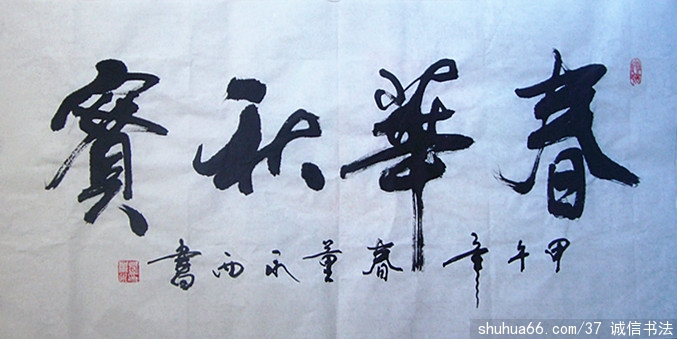 春華秋實
甲午年春董永西書
shuhua66.com/37 诚信书法